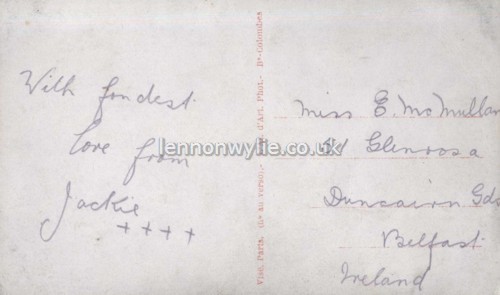 With fondest
love from
Jackie
++++
Miss E. McMullan
Glenrosa
Duncairn Gds
Belfast
Ireland
Visé, Paris. (No au verso).- d'Art. Phot.- Bs-Colombes
lennonwylie.co.uk